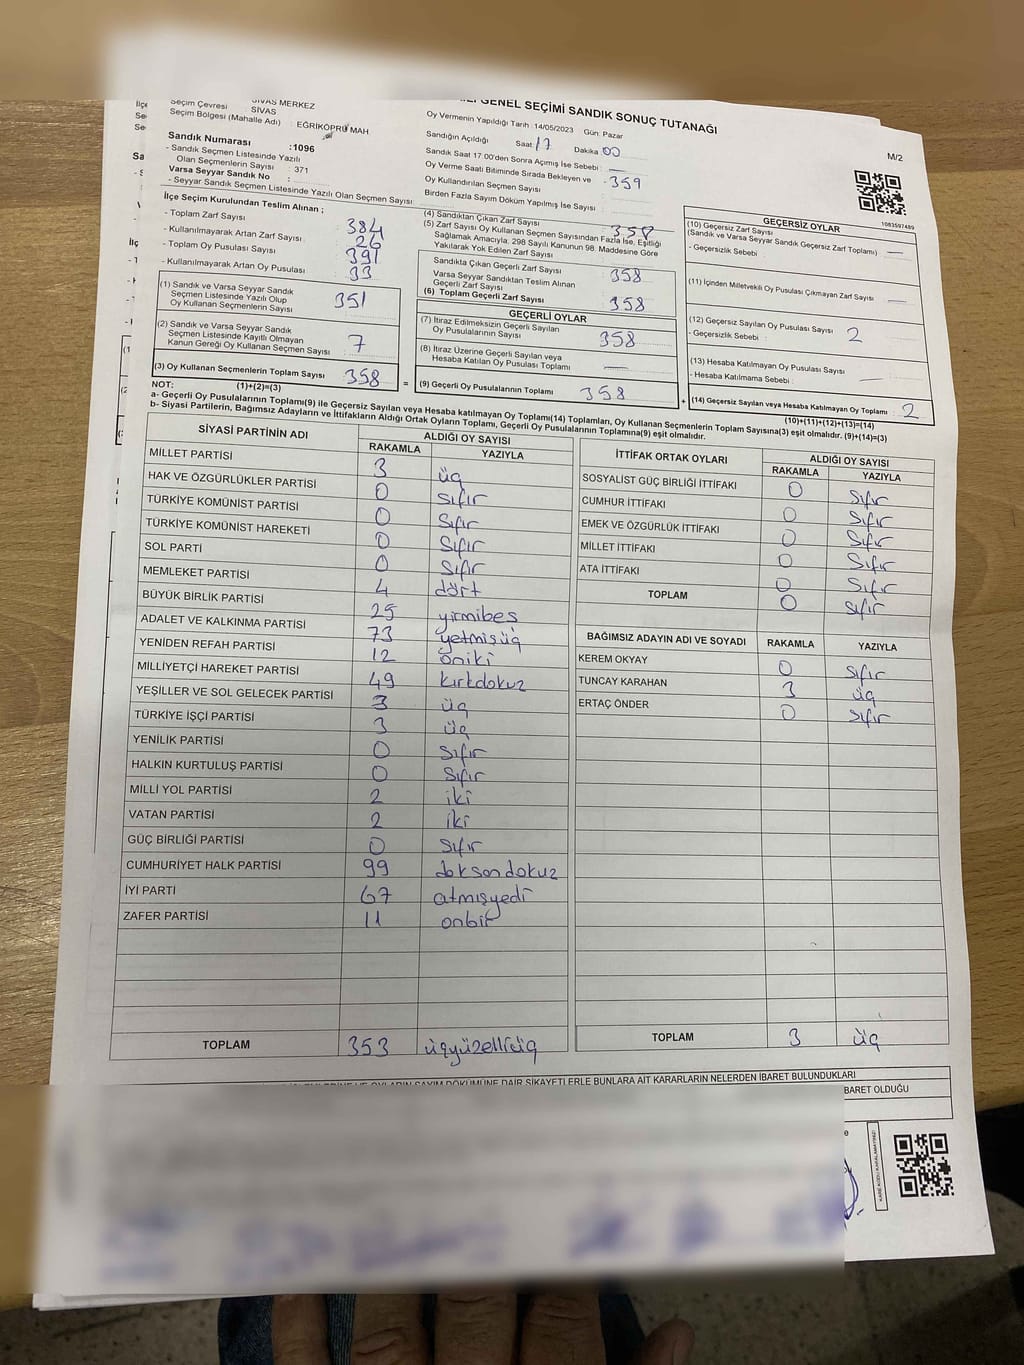 GENEL SEÇİMİ SANDIK SONUÇ TUTANAĞI
M/2
Seçim Çevresi : SİVAS MERKEZ
SİVAS
Seçim Bölgesi (Mahalle Adı) : EĞRİKÖPRÜ MAH
Sandık Numarası :1096
- Sandık Seçmen Listesinde Yazılı
Olan Seçmenlerin Sayısı : 371
Varsa Seyyar Sandık No :
- Seyyar Sandık Seçmen Listesinde Yazılı Olan Seçmen Sayısı:
Oy Vermenin Yapıldığı Tarih : 14/05/2023 Gün: Pazar
Sandığın Açıldığı Saat 17 Dakika 00
Sandık Saat 17.00'den Sonra Açımış İse Sebebi : —
Oy Verme Saati Bitiminde Sırada Bekleyen ve
Oy Kullandırılan Seçmen Sayısı : 359
Birden Fazla Sayım Döküm Yapılmış İse Sayısı :
1083597489
İlçe Seçim Kurulundan Teslim Alınan ;
- Toplam Zarf Sayısı : 384
- Kullanılmayarak Artan Zarf Sayısı : 26
- Toplam Oy Pusulası Sayısı : 391
- Kullanılmayarak Artan Oy Pusulası : 33
(1) Sandık ve Varsa Seyyar Sandık
Seçmen Listesinde Yazılı Olup
Oy Kullanan Seçmenlerin Sayısı : 351
(2) Sandık ve Varsa Seyyar Sandık
Seçmen Listesinde Kayıtlı Olmayan
Kanun Gereği Oy Kullanan Seçmen Sayısı : 7
(3) Oy Kullanan Seçmenlerin Toplam Sayısı : 358
(4) Sandıktan Çıkan Zarf Sayısı : 358
(5) Zarf Sayısı Oy Kullanan Seçmen Sayısından Fazla İse, Eşitliği
Sağlamak Amacıyla, 298 Sayılı Kanunun 98. Maddesine Göre
Yakılarak Yok Edilen Zarf Sayısı :
Sandıkta Çıkan Geçerli Zarf Sayısı : 358
Varsa Seyyar Sandıktan Teslim Alınan
Geçerli Zarf Sayısı :
(6) Toplam Geçerli Zarf Sayısı : 358
GEÇERLİ OYLAR
(7) İtiraz Edilmeksizin Geçerli Sayılan
Oy Pusulalarının Sayısı : 358
(8) İtiraz Üzerine Geçerli Sayılan veya
Hesaba Katılan Oy Pusulası Toplamı : —
=
(9) Geçerli Oy Pusulalarının Toplamı : 358
+
GEÇERSİZ OYLAR
(10) Geçersiz Zarf Sayısı
(Sandık ve Varsa Seyyar Sandık Geçersiz Zarf Toplamı) : —
- Geçersizlik Sebebi :
(11) İçinden Milletvekili Oy Pusulası Çıkmayan Zarf Sayısı : —
(12) Geçersiz Sayılan Oy Pusulası Sayısı : 2
- Geçersizlik Sebebi :
(13) Hesaba Katılmayan Oy Pusulası Sayısı :
- Hesaba Katılmama Sebebi : —
(14) Geçersiz Sayılan veya Hesaba Katılmayan Oy Toplamı : 2
NOT: (1)+(2)=(3) (10)+(11)+(12)+(13)=(14)
a- Geçerli Oy Pusulalarının Toplamı(9) ile Geçersiz Sayılan veya Hesaba katılmayan Oy Toplamı(14) Toplamları, Oy Kullanan Seçmenlerin Toplam Sayısına(3) eşit olmalıdır. (9)+(14)=(3)
b- Siyasi Partilerin, Bağımsız Adayların ve İttifakların Aldığı Ortak Oyların Toplamı, Geçerli Oy Pusulalarının Toplamına(9) eşit olmalıdır.
SİYASİ PARTİNİN ADI ALDIĞI OY SAYISI
RAKAMLA YAZIYLA
MİLLET PARTİSİ 3 üç
HAK VE ÖZGÜRLÜKLER PARTİSİ 0 sıfır
TÜRKİYE KOMÜNİST PARTİSİ 0 sıfır
TÜRKİYE KOMÜNİST HAREKETİ 0 sıfır
SOL PARTİ 0 sıfır
MEMLEKET PARTİSİ 4 dört
BÜYÜK BİRLİK PARTİSİ 25 yirmibeş
ADALET VE KALKINMA PARTİSİ 73 yetmişüç
YENİDEN REFAH PARTİSİ 12 oniki
MİLLİYETÇİ HAREKET PARTİSİ 49 kırkdokuz
YEŞİLLER VE SOL GELECEK PARTİSİ 3 üç
TÜRKİYE İŞÇİ PARTİSİ 3 üç
YENİLİK PARTİSİ 0 sıfır
HALKIN KURTULUŞ PARTİSİ 0 sıfır
MİLLİ YOL PARTİSİ 2 iki
VATAN PARTİSİ 2 iki
GÜÇ BİRLİĞİ PARTİSİ 0 sıfır
CUMHURİYET HALK PARTİSİ 99 doksandokuz
İYİ PARTİ 67 atmışyedi
ZAFER PARTİSİ 11 onbir
TOPLAM 353 üçyüzelliüç
İTTİFAK ORTAK OYLARI ALDIĞI OY SAYISI
RAKAMLA YAZIYLA
SOSYALİST GÜÇ BİRLİĞİ İTTİFAKI 0 sıfır
CUMHUR İTTİFAKI 0 sıfır
EMEK VE ÖZGÜRLÜK İTTİFAKI 0 sıfır
MİLLET İTTİFAKI 0 sıfır
ATA İTTİFAKI 0 sıfır
TOPLAM 0 sıfır
BAĞIMSIZ ADAYIN ADI VE SOYADI RAKAMLA YAZIYLA
KEREM OKYAY 0 sıfır
TUNCAY KARAHAN 3 üç
ERTAÇ ÖNDER 0 sıfır
TOPLAM 3 üç
SAYIM DÖKÜMÜNE DAİR ŞİKAYETLERLE BUNLARA AİT KARARLARIN NELERDEN İBARET BULUNDUKLARI
BARET OLDUĞU